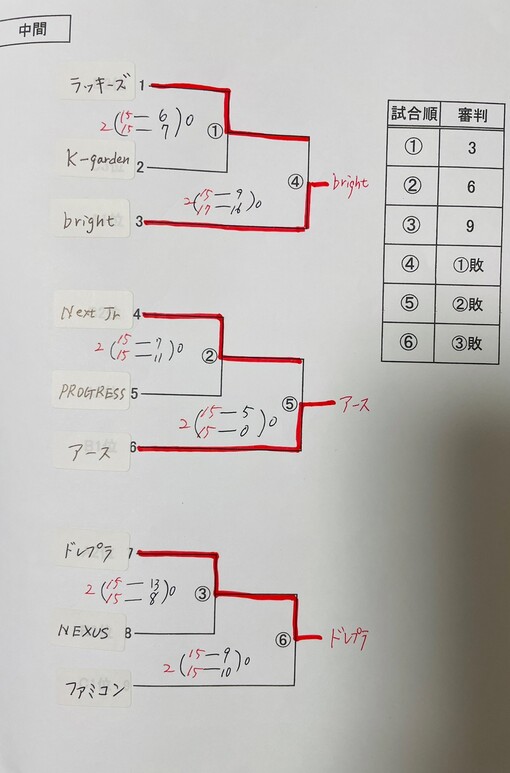 中間
ラッキーズ 1
2 (15 — 6 15 — 7) 0
①
K-garden 2
④ bright
2 (15 — 9 17 — 16) 0
bright 3
Next Jr 4
2 (15 — 7 15 — 11) 0
②
PROGRESS 5
⑤ アース
2 (15 — 5 15 — 0) 0
アース 6
ドレプラ 7
2 (15 — 13 15 — 8) 0
③
NEXUS 8
⑥ ドレプラ
2 (15 — 9 15 — 10) 0
ファミコン
試合順 審判
① 3
② 6
③ 9
④ ①敗
⑤ ②敗
⑥ ③敗